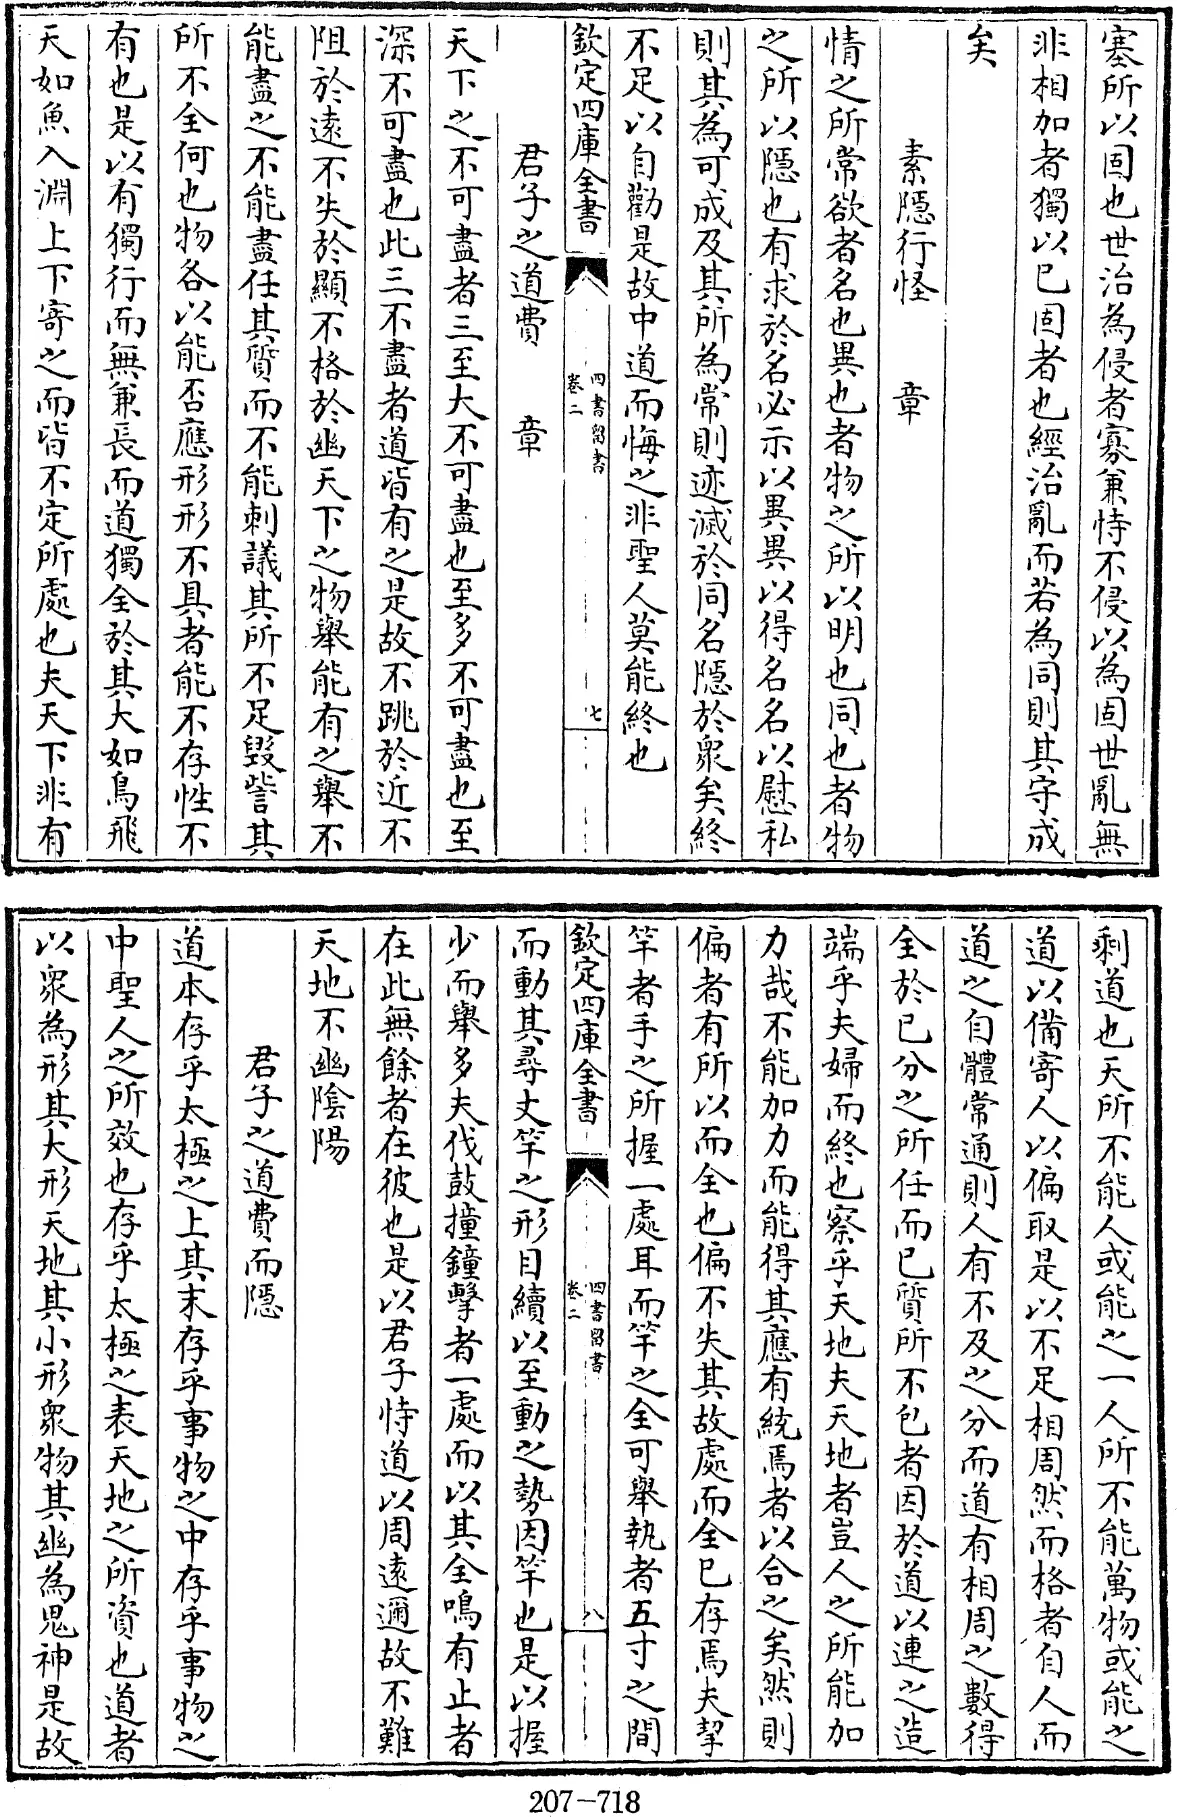 塞所以固也世治為侵者寡兼恃不侵以為固世亂無
非相加者獨以已固者也經治亂而若為同則其守成
矣
素隱行怪　章
情之所常欲者名也異也者物之所以明也同也者物
之所以隱也有求於名必示以異異以得名名以慰私
則其為可成及其所為常則迹滅於同名隱於衆矣終
不足以自勸是故中道而悔之非聖人莫能終也
欽定四庫全書　四書留書　卷二　七
君子之道費　章
天下之不可盡者三至大不可盡也至多不可盡也至
深不可盡也此三不盡者道皆有之是故不跳於近不
阻於遠不失於顯不格於幽天下之物舉能有之舉不
能盡之不能盡任其質而不能刺議其所不足毀訾其
所不全何也物各以能否應形形不具者能不存性不
有也是以有獨行而無兼長而道獨全於其大如鳥飛
天如魚入淵上下寄之而皆不定所處也夫天下非有
剩道也天所不能人或能之一人所不能萬物或能之
道以備寄人以偏取是以不足相周然而格者自人而
道之自體常通則人有不及之分而道有相周之數得
全於已分之所任而已質所不包者因於道以連之造
端乎夫婦而終也察乎天地夫天地者豈人之所能加
力哉不能加力而能得其應有統焉者以合之矣然則
偏者有所以而全也偏不失其故處而全已存焉夫挈
竿者手之所握一處耳而竿之全可舉執者五寸之間
欽定四庫全書　四書留書　卷二　八
而動其尋丈竿之形目續以至動之勢因竿也是以握
少而舉多夫伐鼓撞鐘擊者一處而以其全鳴有止者
在此無餘者在彼也是以君子恃道以周遠邇故不難
天地不幽陰陽
君子之道費而隱
道本存乎太極之上其末存乎事物之中存乎事物之
中聖人之所效也存乎太極之表天地之所資也道者
以衆為形其大形天地其小形衆物其幽為鬼神是故
207-718